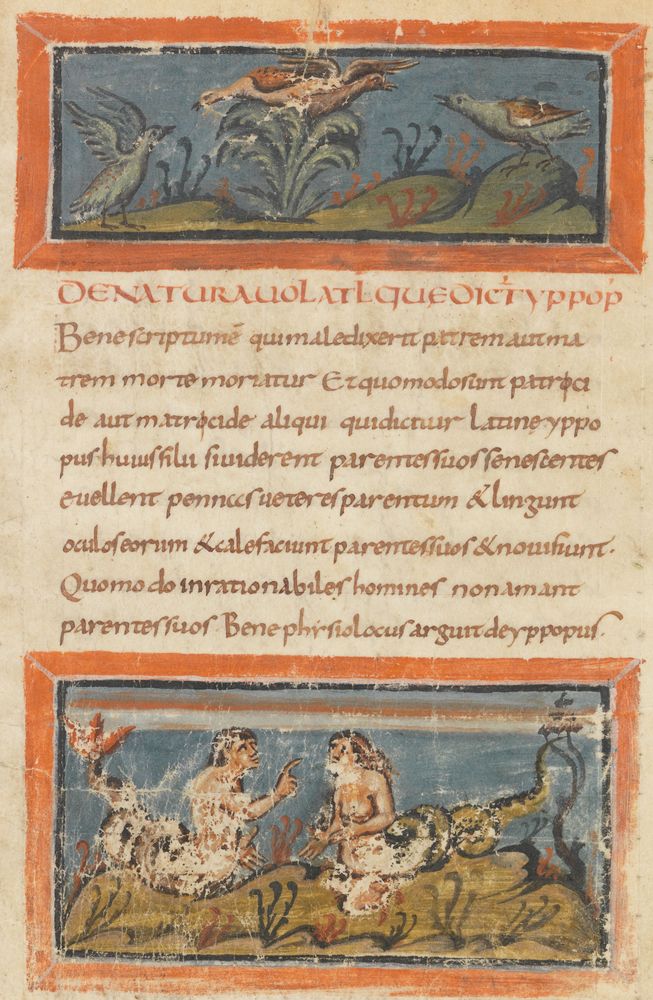 DE NATURA VOLATL QUE DICT YPPOP
Bene scriptum ē qui maledixerit patrem aut ma
trem morte moriatur Et quomodo sunt patroci
de aut matrocide aliqui qui dictiur latine yppo
pus huius filii si viderent parentes suos senescentes
evellent pennas veteres parentum & lingunt
oculos eorum & calefaciunt parentes suos & novi fiunt.
Quomodo inrationabiles homines non amant
parentes suos. Bene phisiolocus arguit de yppopus.